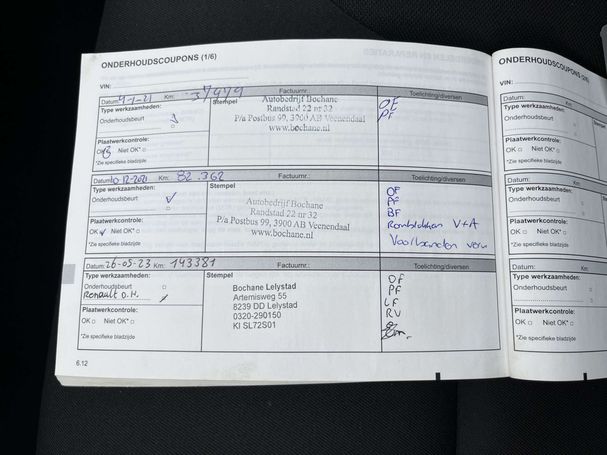 ONDERHOUDSCOUPONS (1/6)
VIN:
Datum: 4-1-21 Km: 37979 Factuurnr.: Toelichting/diversen
Type werkzaamheden:
Onderhoudsbeurt
Plaatwerkcontrole:
OK Niet OK*
*Zie specifieke bladzijde
Stempel
Autobedrijf Bochane
Randstad 22 nr 32
P/a Postbus 99, 3900 AB Veenendaal
www.bochane.nl
OF
PF
Datum: 10-12-2021 Km: 82.362 Factuurnr.: Toelichting/diversen
Type werkzaamheden:
Onderhoudsbeurt
Plaatwerkcontrole:
OK Niet OK*
*Zie specifieke bladzijde
Stempel
Autobedrijf Bochane
Randstad 22 nr 32
P/a Postbus 99, 3900 AB Veenendaal
www.bochane.nl
OF
PF
BF
Remblokken V+A
Voorbanden verv
Datum: 26-05-23 Km: 143381 Factuurnr.: Toelichting/diversen
Type werkzaamheden:
Onderhoudsbeurt
Renault O.H.
Plaatwerkcontrole:
OK Niet OK*
*Zie specifieke bladzijde
Stempel
Bochane Lelystad
Artemisweg 55
8239 DD Lelystad
0320-290150
KI SL72S01
OF
PF
LF
RV
6.12
ONDERHOUDSCOUPONS
VIN:
Datum:
Type werkzaamheden:
Onderhoudsbeurt
Plaatwerkcontrole:
OK Niet OK*
*Zie specifieke bladzijde
Datum:
Type werkzaamheden:
Onderhoudsbeurt
Plaatwerkcontrole:
OK Niet OK*
*Zie specifieke bladzijde
Datum:
Type werkzaamheden:
Onderhoudsbeurt
Plaatwerkcontrole:
OK Niet OK*
*Zie specifieke bladzijde